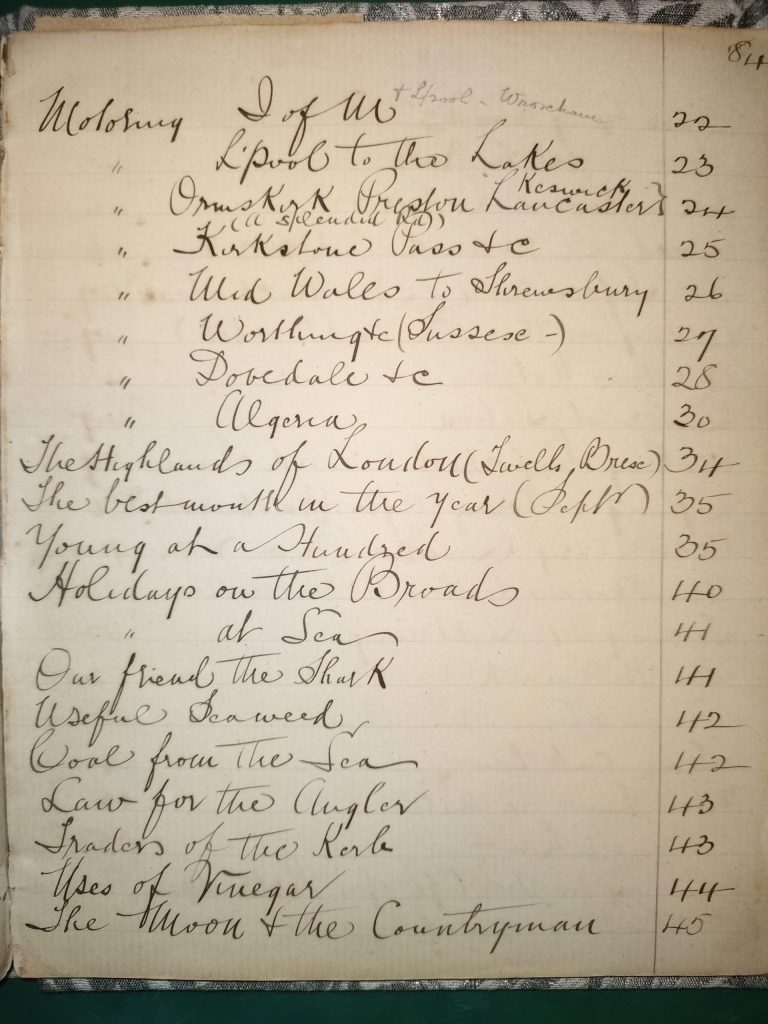 84
Motoring I of M + L'pool - Wroxham 22
" L'pool to the Lakes 23
" Ormskirk Preston Lancaster Keswick } 24
" Kirkstone Pass &c (A splendid Rd) 25
" Mid Wales to Shrewsbury 26
" Worthing &c (Sussex -) 27
" Dovedale &c 28
" Algeria 30
The Highlands of London ( ) 34
The best month in the year (Septr) 35
Young at a Hundred 35
Holidays on the Broads 40
" at Sea 41
Our friend the Shark 41
Useful Seaweed 42
Coal from the Sea 42
Law for the Angler 43
Traders of the Kerb 43
Uses of Vinegar 44
The Moon & the Countryman 45